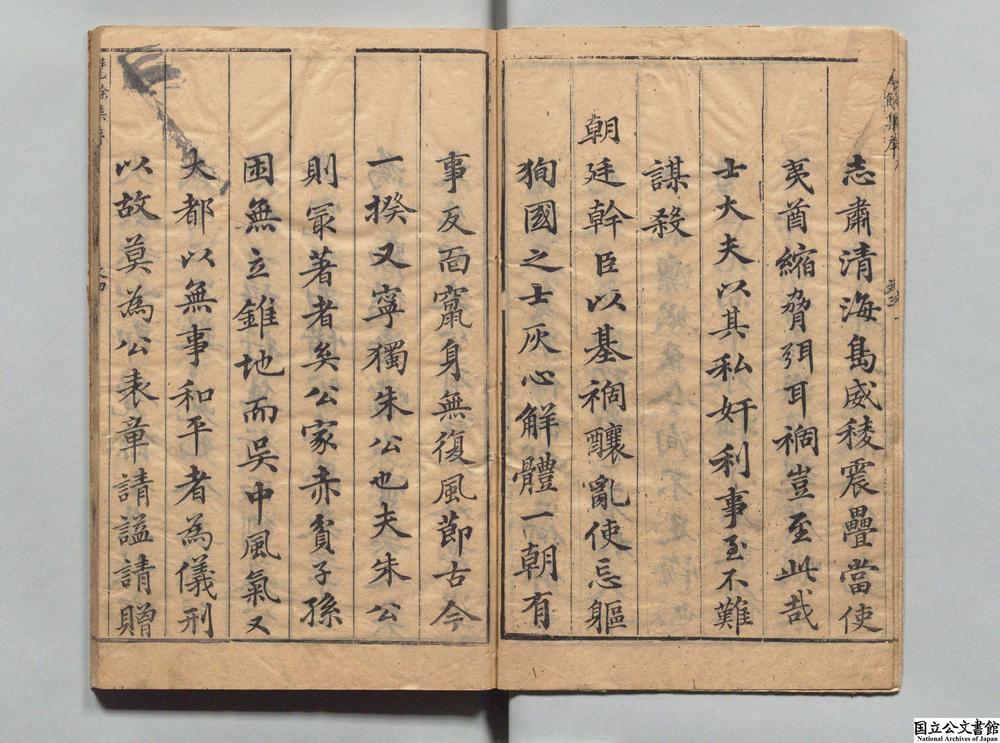 志肅清海島威稜震疊當使
夷酋縮脅弭耳禍豈至此哉
士大夫以其私奸利事至不難
謀殺
朝廷幹臣以基禍釀亂使忘軀
狥國之士灰心解體一朝有
事反面竄身無復風節古今
一揆又寧獨朱公也夫朱公
則冣著者矣公家赤貧子孫
困無立錐地而吳中風氣又
大都以無事和平者為儀刑
以故莫為公表章請謚請贈
国立公文書館
National Archives of Japan